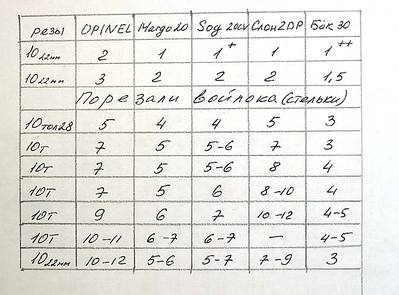 резы OPINEL Margo20 Sog 20cv Слон2DP Бак 30
10 22мм 2 1 1+ 1 1++
10 22мм 3 2 2 2 1,5
Порезали войлока (стельки)
10топ28 5 4 4 5 3
10т 7 5 5-6 7 3
10т 7 5 5-6 8 4
10т 7 5 6 8-10 4
10т 9 6 7 10-12 4-5
10т 10-11 6-7 6-7 — 4-5
10 22мм 10-12 5-6 5-7 7-9 3